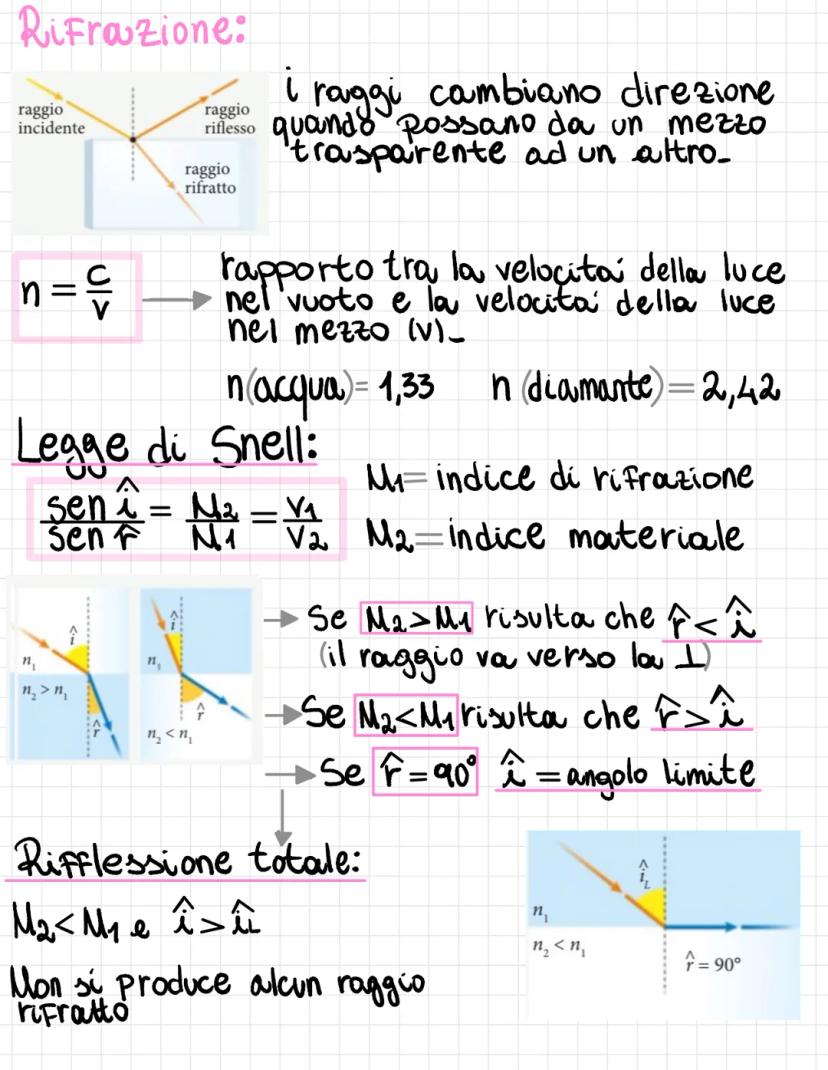 Rifrazione:
raggio incidente
raggio riflesso
raggio rifratto
i raggi cambiano direzione
quando possano da un mezzo
trasparente ad un altro_
n = c/v → rapporto tra la velocità della luce
nel vuoto e la velocità della luce
nel mezzo (v)_
n(acqua) = 1,33 n (diamante) = 2,42
Legge di Snell:
sen î / sen r̂ = N2 / N1 = V1 / V2
N1 = indice di rifrazione
N2 = indice materiale
î
n₁
n₂ > n₁
r̂
î
n₁
r̂
n₂ < n₁
→ Se N2 > N1 risulta che r̂ < î
(il raggio va verso la ⊥)
→ Se N2 < N1 risulta che r̂ > î
→ Se r̂ = 90° î = angolo limite
Rifflessione totale:
N2 < N1 e î > îL
Non si produce alcun raggio
rifratto
î_L
n₁
n₂ < n₁
r̂ = 90°